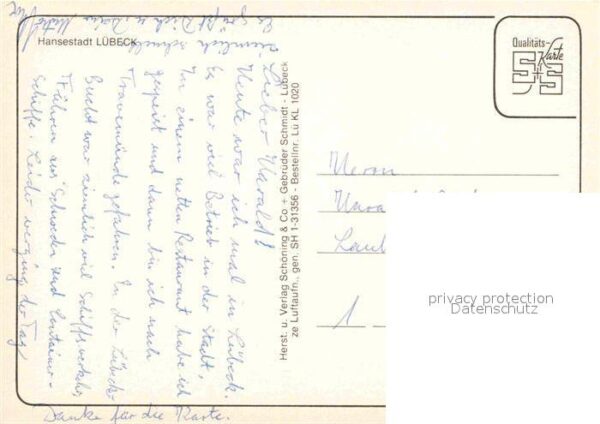 Hansestadt LÜBECK
Lieber Harald!
Heute war ich mal in Lübeck.
Es war viel Betrieb in der Stadt,
In einem netten Restaurant habe ich
gespeist und dann bin ich nach
Travemünde gefahren. In der Lübecker
Bucht war ziemlich viel Schiffsverkehr,
Fähren aus Schweden und Container-
Schiffe. Leider verging der Tag
ziemlich schnell
Es grüßt Dich u. Deine
Danke für die Karte.
Herst. u. Verlag Schöning & Co + Gebrüder Schmidt - Lübeck
ze Luftaufn., gen. SH 1-31356 - Bestellnr. Lü KL 1020
Qualitäts-
Karte
S+S
Herrn
Hara
Lau
1
privacy protection
Datenschutz